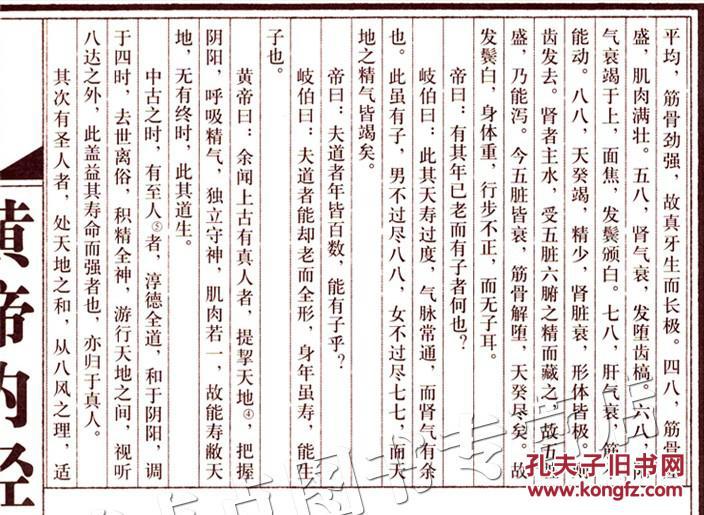 平均，筋骨劲强，故真牙生而长极。四八，筋骨
盛，肌肉满壮。五八，肾气衰，发堕齿槁。六八，
气衰竭于上，面焦，发鬓颁白。七八，肝气衰，筋
能动。八八，天癸竭，精少，肾脏衰，形体皆极，
齿发去。肾者主水，受五脏六腑之精而藏之，故五
盛，乃能泻。今五脏皆衰，筋骨解堕，天癸尽矣。故
发鬓白，身体重，行步不正，而无子耳。
帝曰：有其年已老而有子者何也？
岐伯曰：此其天寿过度，气脉常通，而肾气有余
也。此虽有子，男不过尽八八，女不过尽七七，而天
地之精气皆竭矣。
帝曰：夫道者年皆百数，能有子乎？
岐伯曰：夫道者能却老而全形，身年虽寿，能生
子也。
黄帝曰：余闻上古有真人者，提挈天地④，把握
阴阳，呼吸精气，独立守神，肌肉若一，故能寿敝天
地，无有终时，此其道生。
中古之时，有至人⑤者，淳德全道，和于阴阳，调
于四时，去世离俗，积精全神，游行天地之间，视听
八达之外，此盖益其寿命而强者也，亦归于真人。
其次有圣人者，处天地之和，从八风之理，适
黄帝内经
图书专营店
孔夫子旧书网
www.kongfz.com